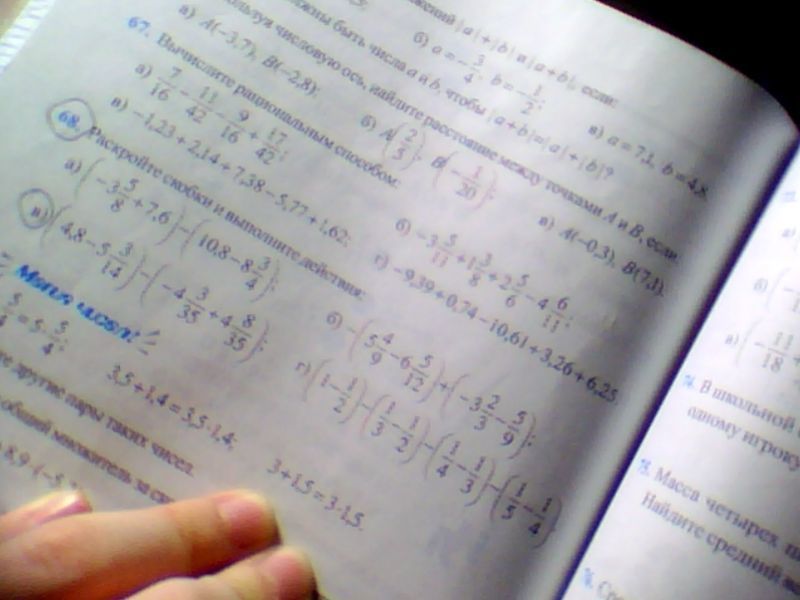 |a|+|b| и |a+b|, если:
б) a = -3/4, b = -1/2;
в) a = 7,1, b = 4,8.
быть числа a и b, чтобы |a+b|=|a|+|b|?
числовую ось, найдите расстояние между точками A и B, если
а) A(-3,7), B(-2,8);
б) A(2/5), B(-1/20);
в) A(-0,3), B(7,1).
67. Вычислите рациональным способом:
а) 7/16 - 11/42 - 9/16 + 17/42;
б) -3 5/11 + 1 3/8 + 2 5/6 - 4 6/11;
в) -1,23 + 2,14 + 7,38 - 5,77 + 1,62;
г) -9,39 + 0,74 - 10,61 + 3,26 + 6,25.
68. Раскройте скобки и выполните действия:
а) (-3 5/8 + 7,6) - (10,8 - 8 3/4);
б) -(5 4/9 - 6 5/12) + (-3 2/3 - 5/9);
в) (4,8 - 5 3/14) - (-4 3/35 + 4 8/35);
г) (1 - 1/2) - (1/3 - 1/2) - (1/4 - 1/3) - (1/5 - 1/4)
числа!
= 5 · 5/4;
3,5 + 1,4 = 3,5 · 1,4;
3 + 1,5 = 3 · 1,5.
другие пары таких чисел.
общий множитель за
8,9 · (-5,
а)
б)
в) (-11/18
74. В школьной
одному игроку
75. Масса четырех
Найдите средний
76.